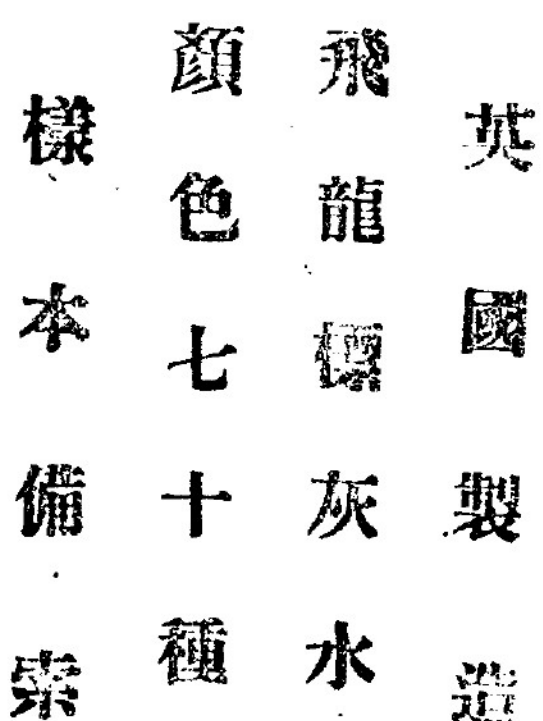 英國製造
飛龍標灰水
顏色七十種
樣本備索